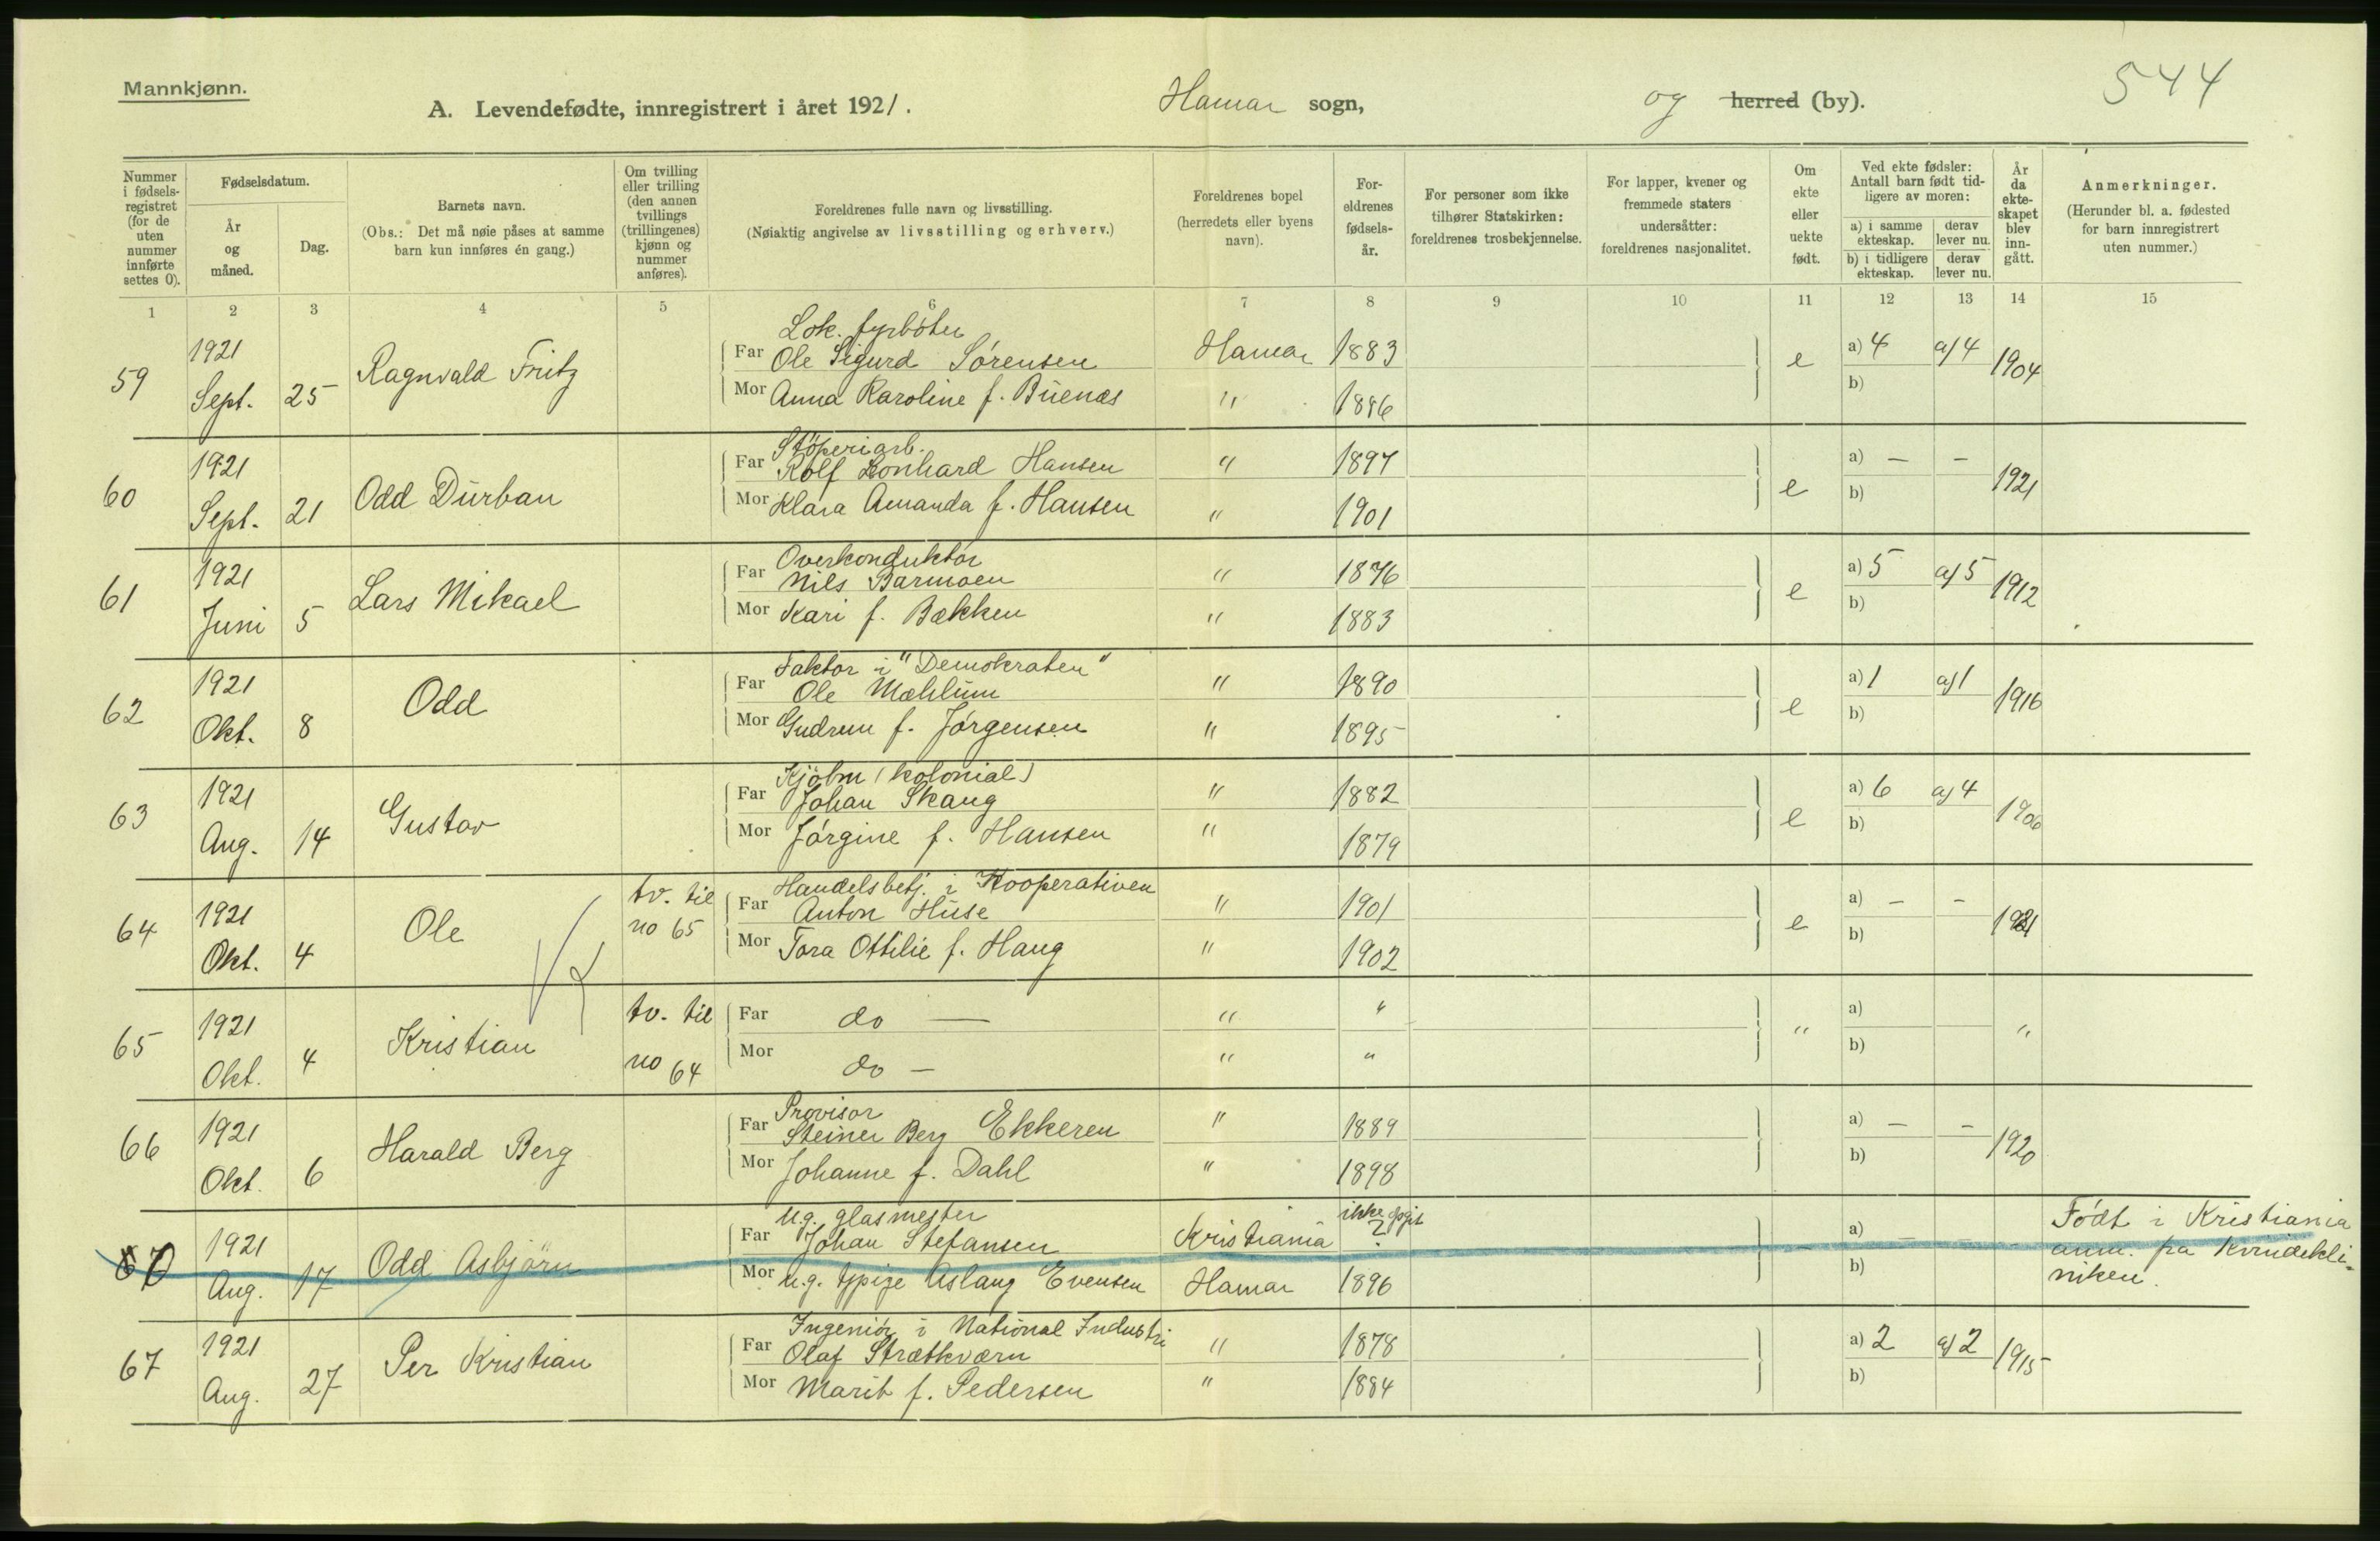 Mannkjønn.
544
A. Levendefødte, innregistrert i året 1921. Hamar sogn, og herred (by).
Nummer i fødselsregistret (for de uten nummer innførte settes 0).
Fødselsdatum.
År og måned.
Dag.
Barnets navn.
(Obs.: Det må nøie påses at samme barn kun innføres én gang.)
Om tvilling eller trilling (den annen tvillings (trillingenes) kjønn og nummer anføres).
Foreldrenes fulle navn og livsstilling.
(Nøiaktig angivelse av livsstilling og erhverv.)
Foreldrenes bopel (herredets eller byens navn).
Foreldrenes fødselsår.
For personer som ikke tilhører Statskirken: foreldrenes trosbekjennelse.
For lapper, kvener og fremmede staters undersåtter: foreldrenes nasjonalitet.
Om ekte eller uekte født.
Ved ekte fødsler: Antall barn født tidligere av moren:
a) i samme ekteskap. derav lever nu.
b) i tidligere ekteskap. derav lever nu.
År da ekteskapet blev inngått.
Anmerkninger.
(Herunder bl. a. fødested for barn innregistrert uten nummer.)
1 2 3 4 5 6 7 8 9 10 11 12 13 14 15
59 1921 Sept. 25 Ragnvald Fritz
Lok. fyrbøter
Far Ole Sigurd Sørensen Hamar 1883 e a) 4 a) 4 1904
Mor Anna Karoline f. Buenæs " 1886 b)
60 1921 Sept. 21 Odd Durban
Støperiarb.
Far Rolf Leonhard Hansen " 1897 e a) – – 1921
Mor Klara Amanda f. Hansen " 1901 b)
61 1921 Juni 5 Lars Mikael
Overkonduktør
Far Nils Barmoen " 1876 e a) 5 a) 5 1912
Mor Kari f. Bækken " 1883 b)
62 1921 Okt. 8 Odd
Faktor i "Demokraten"
Far Ole Mæhlum " 1890 e a) 1 a) 1 1916
Mor Gudrun f. Jørgensen " 1895 b)
63 1921 Aug. 14 Gustav
Kjøbm (kolonial)
Far Johan Skaug " 1882 e a) 6 a) 4 1906
Mor Jørgine f. Hansen " 1879 b)
64 1921 Okt. 4 Ole tv. til no 65
Handelsbetj. i Kooperativen
Far Anton Huse " 1901 e a) – – 1921
Mor Tora Ottilie f. Haug " 1902 b)
65 1921 Okt. 4 Kristian tv. til no 64
Far do — " " " a) "
Mor do – " " b)
66 1921 Okt. 6 Harald Berg
Provisor
Far Steiner Berg Ekkeren " 1889 a) – – 1920
Mor Johanne f. Dahl " 1898 b)
0 1921 Aug. 17 Odd Asbjørn
u.g. glasmester
Far Johan Stefansen Kristiania ikke opgit ? a) – – –
Mor u.g. tjpige Aslaug Evensen Hamar 1896 b)
Født i Kristiania
anm. på Kvindekli-
niken.
67 1921 Aug. 27 Per Kristian
Ingeniør i National Industri
Far Olaf Strætkværn " 1878 a) 2 a) 2 1915
Mor Marit f. Pedersen " 1884 b)